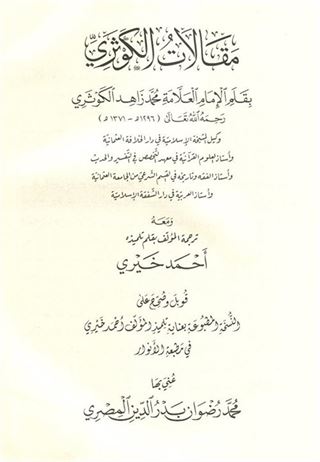 مقالات الكوثري
بقلم الإمام العلامة محمد زاهد الكوثري
رحمه الله تعالى (١٢٩٦ هـ - ١٣٧١ هـ)
وكيل المشيخة الإسلامية في دار الخلافة العثمانية
وأستاذ علوم القرآنية في معهد التخصص في التفسير والحديث
وأستاذ الفقه وتاريخه في القسم الشرعي من الجامعة العثمانية
وأستاذ العربية في دار الشفقة الإسلامية
ومعه
ترجمة المؤلف بقلم تلميذه
أحمد خيري
قوبل وصحح على
النسخة المطبوعة بعناية تلميذ المؤلف أحمد خيري
في مطبعة الأنوار
عني بها
محمد رضوان بدر الدين المصري